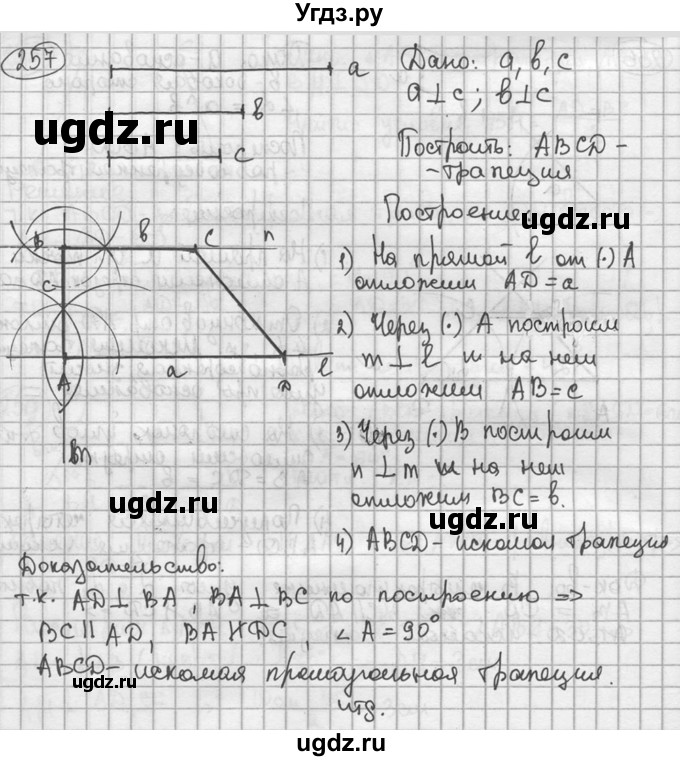 Угдз.ру
257
a
в
c
Дано: a, в, c
a⊥c; в⊥c
Построить: ABCD -
- трапеция
Построение:
ugdz.ru
ugdz.ru
B в C n
c
A a D l
m
1) На прямой l от (·) A
отложим AD = a
2) Через (·) A построим
m ⊥ l и на ней
отложим AB = c
3) Через (·) B построим
n ⊥ m и на ней
отложим BC = в.
4) ABCD - искомая трапеция
ugdz.ru
ugdz.ru
Доказательство:
т.к. AD⊥ BA, BA⊥BC по построению =>
BC || AD, BA ∦ DC, ∠A = 90°
ABCD - искомая прямоугольная трапеция.
чтд.
ugdz.ru
ugdz.ru
ugdz.ru